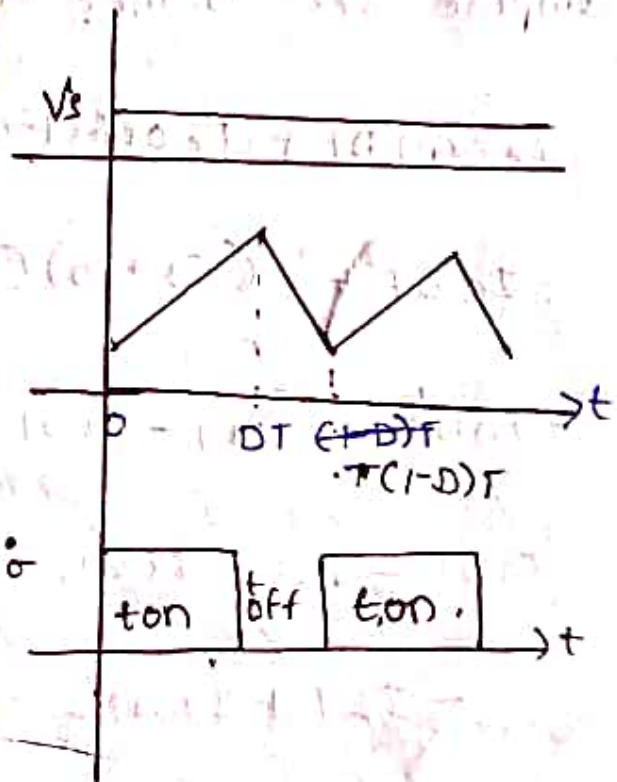 Vs
t
0 DT (1-D)T
T(1-D)T
ton toff t,on.
t